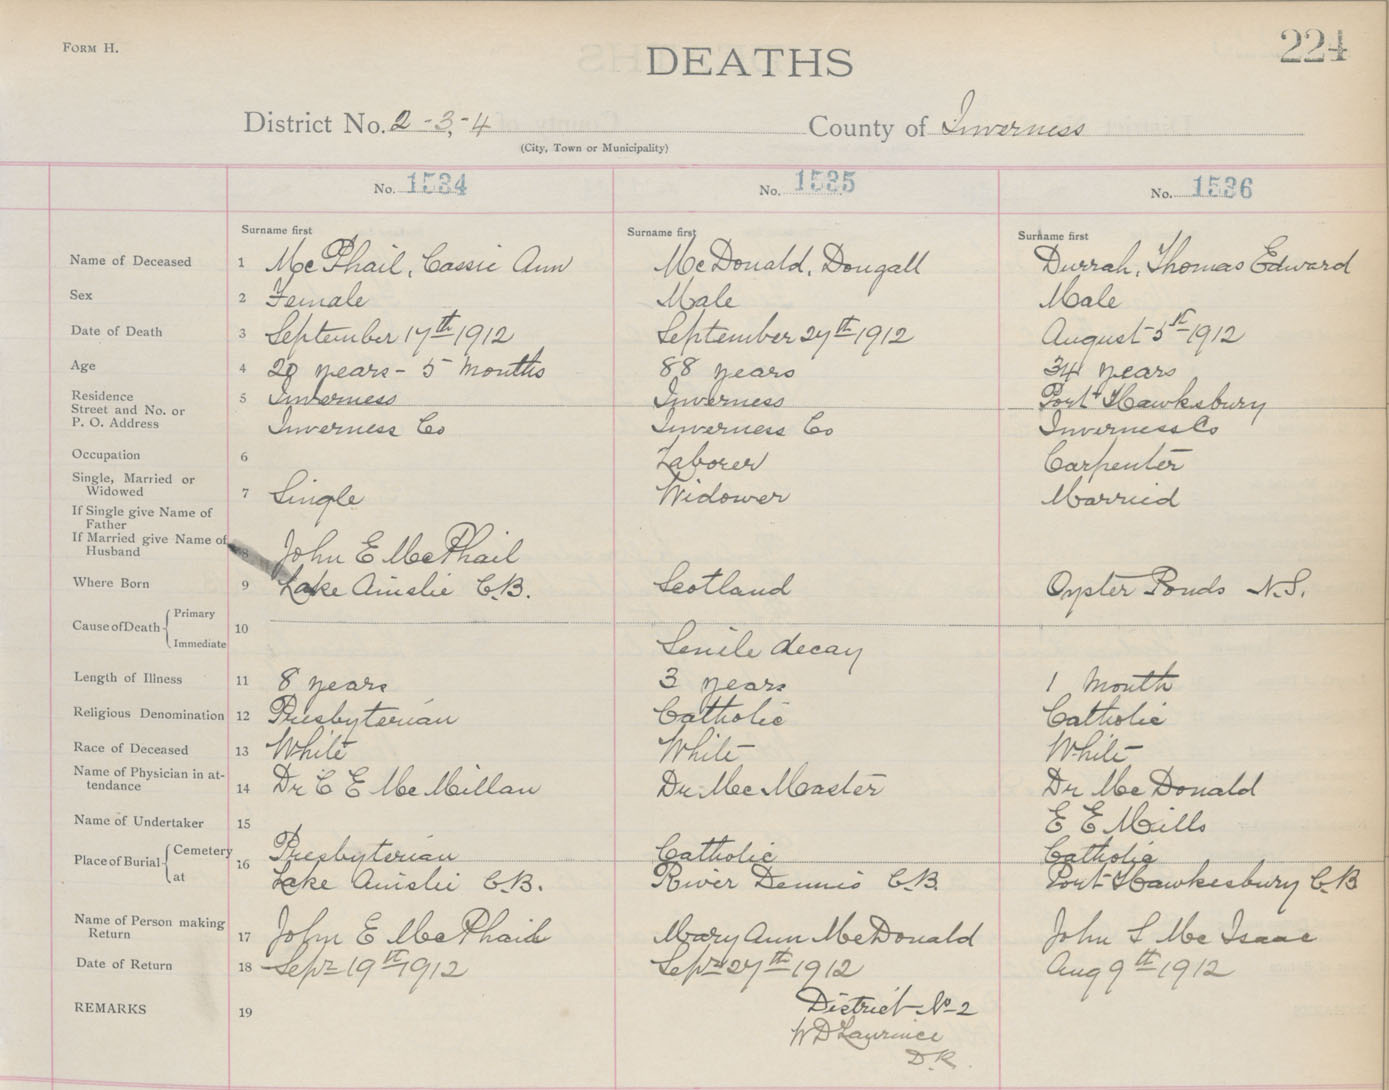 FORM H.
DEATHS
224
District No. 2-3-4
County of Inverness
(City, Town or Municipality)
No. 1534
No. 1535
No. 1536
Surname first
Surname first
Surname first
Name of Deceased 1 McPhail, Cassie Ann McDonald, Dougall Durrah, Thomas Edward
Sex 2 Female Male Male
Date of Death 3 September 17th 1912 September 27th 1912 August 5th 1912
Age 4 20 years - 5 months 88 years 34 years
Residence 5 Inverness Inverness Port Hawksbury
Street and No. or
P. O. Address Inverness Co Inverness Co Inverness Co
Occupation 6 Laborer Carpenter
Single, Married or
Widowed 7 Single Widower Married
If Single give Name of
Father
If Married give Name of
Husband 8 John E McPhail
Where Born 9 Lake Ainslie C.B. Scotland Oyster Ponds N.S.
Cause of Death Primary 10
Immediate Senile decay
Length of Illness 11 8 years 3 years 1 Month
Religious Denomination 12 Presbyterian Catholic Catholic
Race of Deceased 13 White White White
Name of Physician in at-
tendance 14 Dr C E McMillan Dr McMaster Dr McDonald
Name of Undertaker 15 E E Mills
Place of Burial Cemetery 16 Presbyterian Catholic Catholic
at Lake Ainslie C.B. River Dennis C.B. Port Hawkesbury C.B
Name of Person making
Return 17 John E McPhail Mary Ann McDonald John S McIsaac
Date of Return 18 Sept 19th 1912 Sept 27th 1912 Aug 9th 1912
REMARKS 19 District No 2
W D Lawrence
D.R.